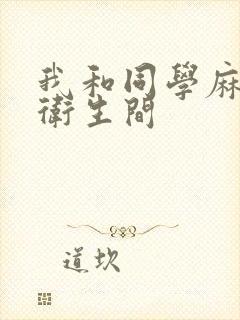 我和同學麻
衛生間
道坎